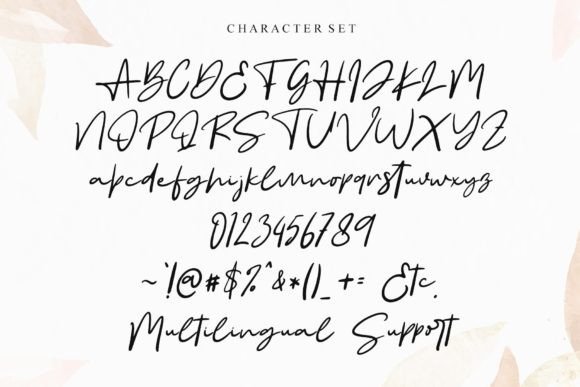 CHARACTER SET
ABCDEFGHIJKLM
NOPQRSTUVWXYZ
abcdefghijklmnopqrstuvwxyz
0123456789
~`!@#$%^&*()_+= Etc.
Multilingual Support